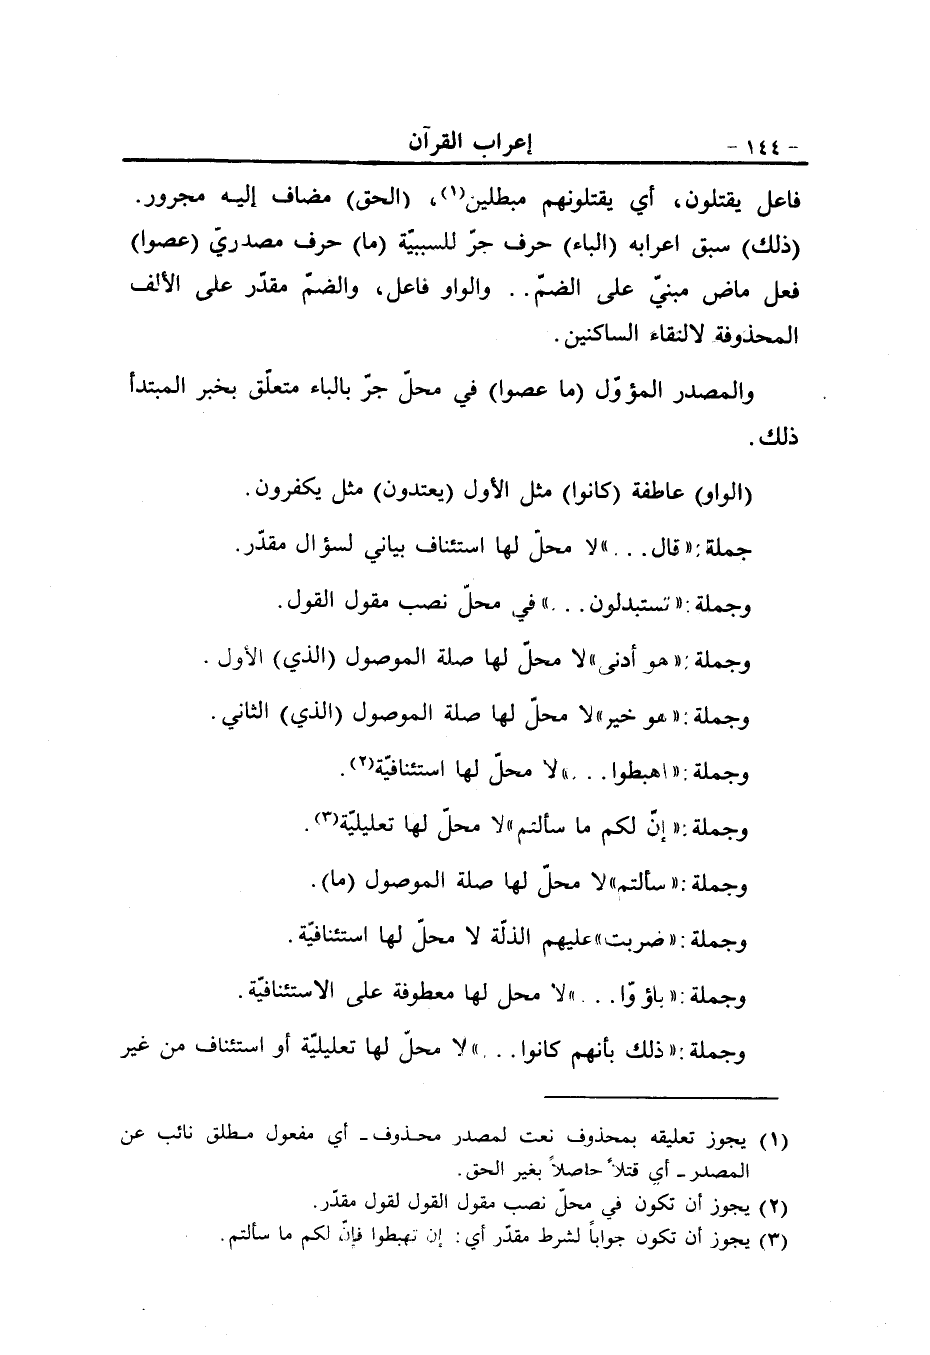 - ١٤٤ - إعراب القرآن
فاعل يقتلون، أي يقتلونهم مبطلين(١)، (الحق) مضاف إليه مجرور.
(ذلك) سبق اعرابه (الباء) حرف جرّ للسببيّة (ما) حرف مصدريّ (عصوا)
فعل ماض مبنيّ على الضمّ.. والواو فاعل، والضمّ مقدّر على الألف
المحذوفة لالتقاء الساكنين.
والمصدر المؤوّل (ما عصوا) في محلّ جرّ بالباء متعلّق بخبر المبتدأ
ذلك.
(الواو) عاطفة (كانوا) مثل الأول (يعتدون) مثل يكفرون.
جملة: «قال...» لا محلّ لها استئناف بياني لسؤال مقدّر.
وجملة: «تستبدلون...» في محلّ نصب مقول القول.
وجملة: «هو أدنى» لا محلّ لها صلة الموصول (الذي) الأول.
وجملة: «هو خير» لا محلّ لها صلة الموصول (الذي) الثاني.
وجملة: «اهبطوا...» لا محلّ لها استئنافيّة(٢).
وجملة: «إنّ لكم ما سألتم» لا محلّ لها تعليليّة(٣).
وجملة: «سألتم» لا محلّ لها صلة الموصول (ما).
وجملة: «ضربت» عليهم الذلّة لا محلّ لها استئنافيّة.
وجملة: «باؤوّا...» لا محل لها معطوفة على الاستئنافيّة.
وجملة: «ذلك بأنهم كانوا...» لا محلّ لها تعليليّة أو استئناف من غير
(١) يجوز تعليقه بمحذوف نعت لمصدر محذوف ـ أي مفعول مطلق نائب عن
المصدر ـ أي قتلاً حاصلاً بغير الحق.
(٢) يجوز أن تكون في محلّ نصب مقول القول لقول مقدّر.
(٣) يجوز أن تكون جواباً لشرط مقدّر أي: إن تهبطوا فإنّ لكم ما سألتم.